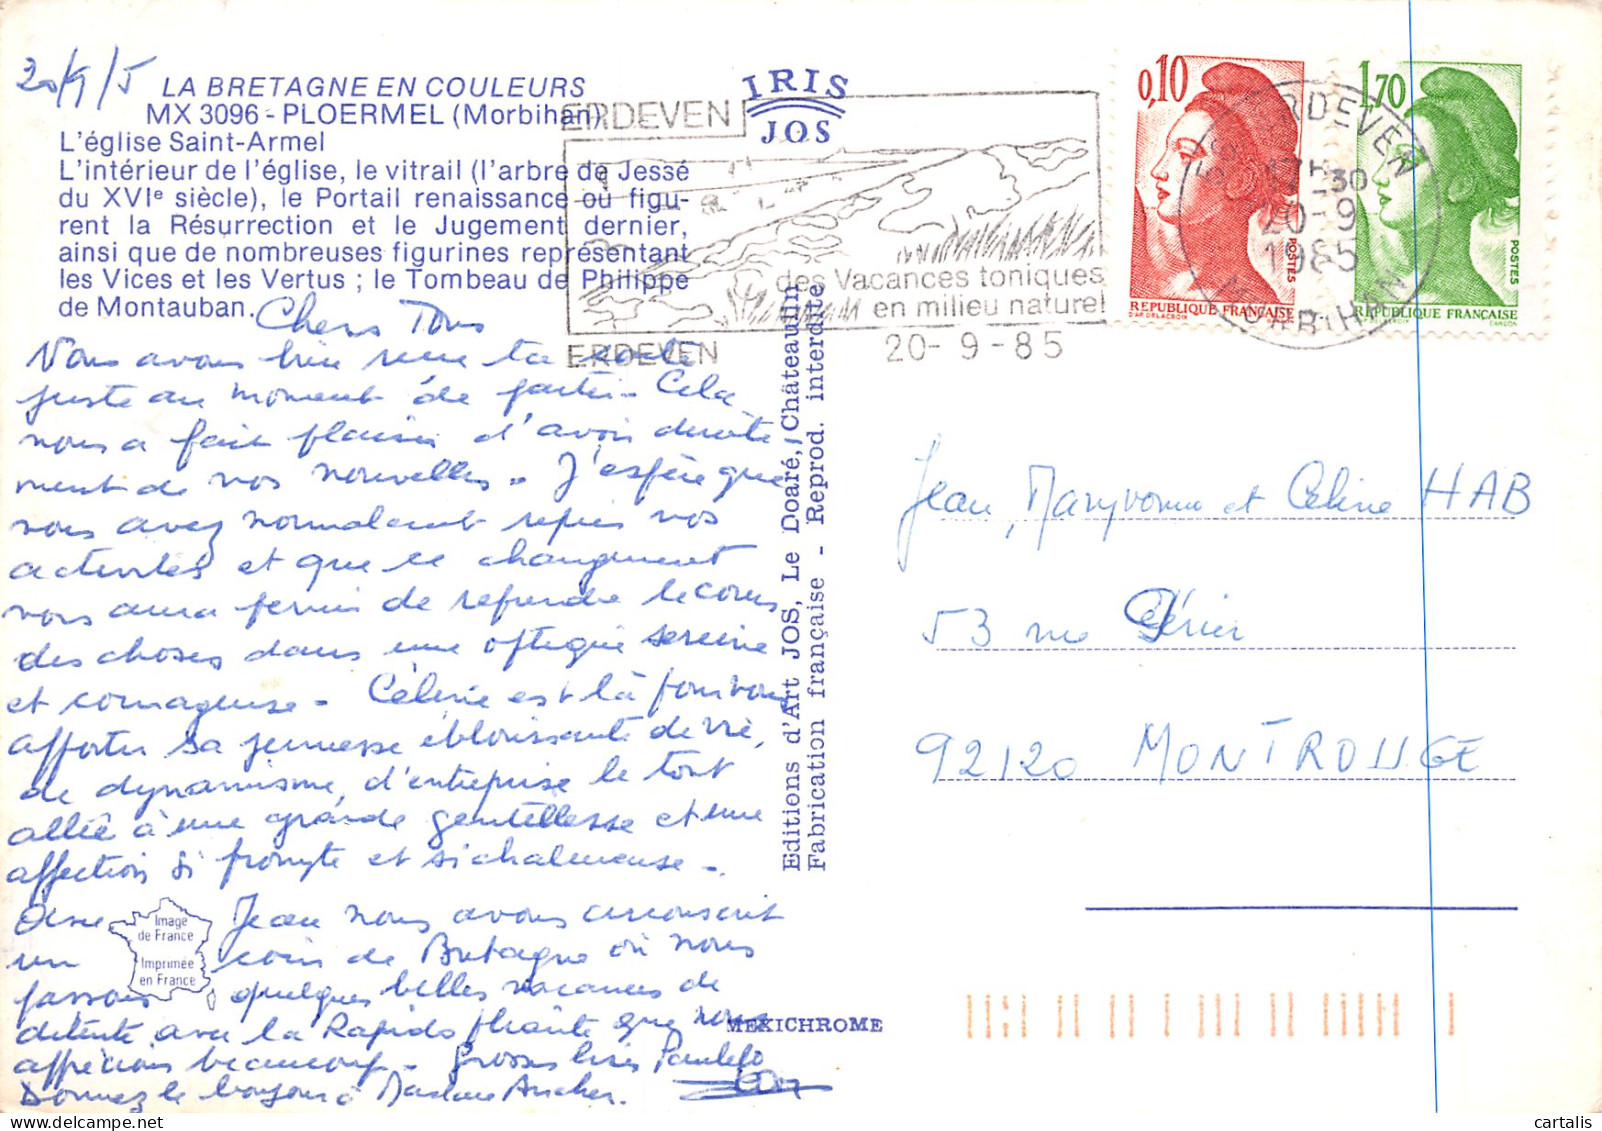 20/9/5
LA BRETAGNE EN COULEURS
MX 3096 - PLOERMEL (Morbihan)
L'église Saint-Armel
L'intérieur de l'église, le vitrail (l'arbre de Jessé
du XVIe siècle), le Portail renaissance où figu-
rent la Résurrection et le Jugement dernier,
ainsi que de nombreuses figurines représentant
les Vices et les Vertus ; le Tombeau de Philippe
de Montauban.
Chers Tous
Nous avons bien reçu ta carte
juste au moment de partir - Cela
nous a fait plaisir d'avoir directe-
ment de vos nouvelles. J'espère que
vous avez normalement repris vos
activités et que ce changement
vous aura permis de reprendre le cours
des choses dans une optique sereine
et courageuse - Céline est là pour vous
apporter sa jeunesse éblouissante de vie,
de dynamisme, d'entreprise le tout
allié à une grande gentillesse et une
affection si prompte et si chaleureuse -
Jean nous avons circonscrit
un coin de Bretagne où nous
passons quelques belles vacances de
détente avec la Rapido que nous
apprécions beaucoup - Grosses bises
Donnez le bonjour à Madame
Image
de France
Imprimée
en France
IRIS
JOS
ERDEVEN
des Vacances toniques
en milieu naturel
ERDEVEN
20-9-85
0,10
REPUBLIQUE FRANÇAISE
POSTES
1,70
REPUBLIQUE FRANÇAISE
POSTES
ERDEVEN
17H30
20-9
1985
MORBIHAN
Editions d'Art JOS, Le Doaré, Châteaulin
Fabrication française - Reprod. interdite
MEXICHROME
Jean, Maryvonne et Céline HAB
53 rue Périer
92120 MONTROUGE
cartalis